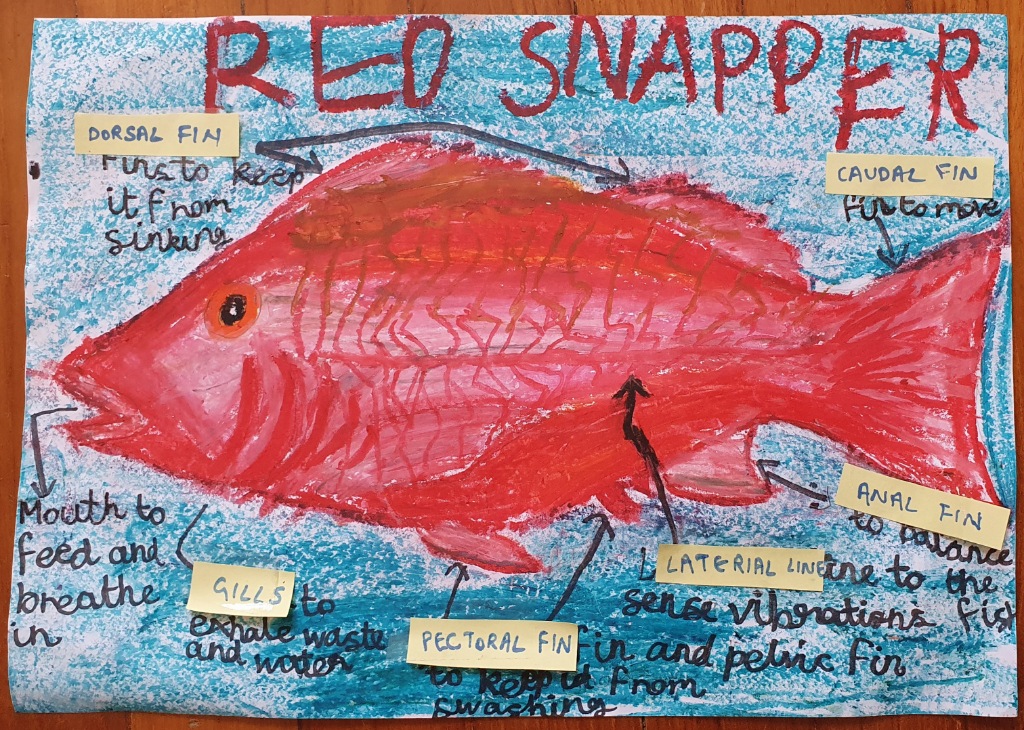 RED SNAPPER
DORSAL FIN
Fins to keep
it from
sinking
CAUDAL FIN
fin to move
Mouth to
feed and
breathe
in
GILLS
to
exhale waste
and water
PECTORAL FIN
fin and pelvic fin
to keep it from
swashing
LATERIAL LINE
line to
sense vibrations
ANAL FIN
to balance
the
fish